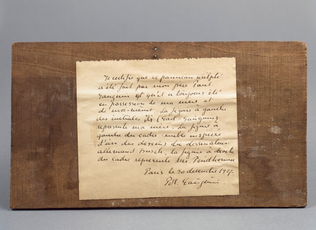 Je certifie que ce panneau sculpté
a été fait par mon père Paul
Gauguin et qu'il a toujours été
en possession de ma mère et
de moi-même. La figure à gauche
des initiales PG (Paul Gauguin)
représente ma mère. La figure à
gauche du cadre semble inspirée
d'un des dessins du dessinateur
la figure à droite
du cadre représente
Paris le 30 décembre
Gauguin